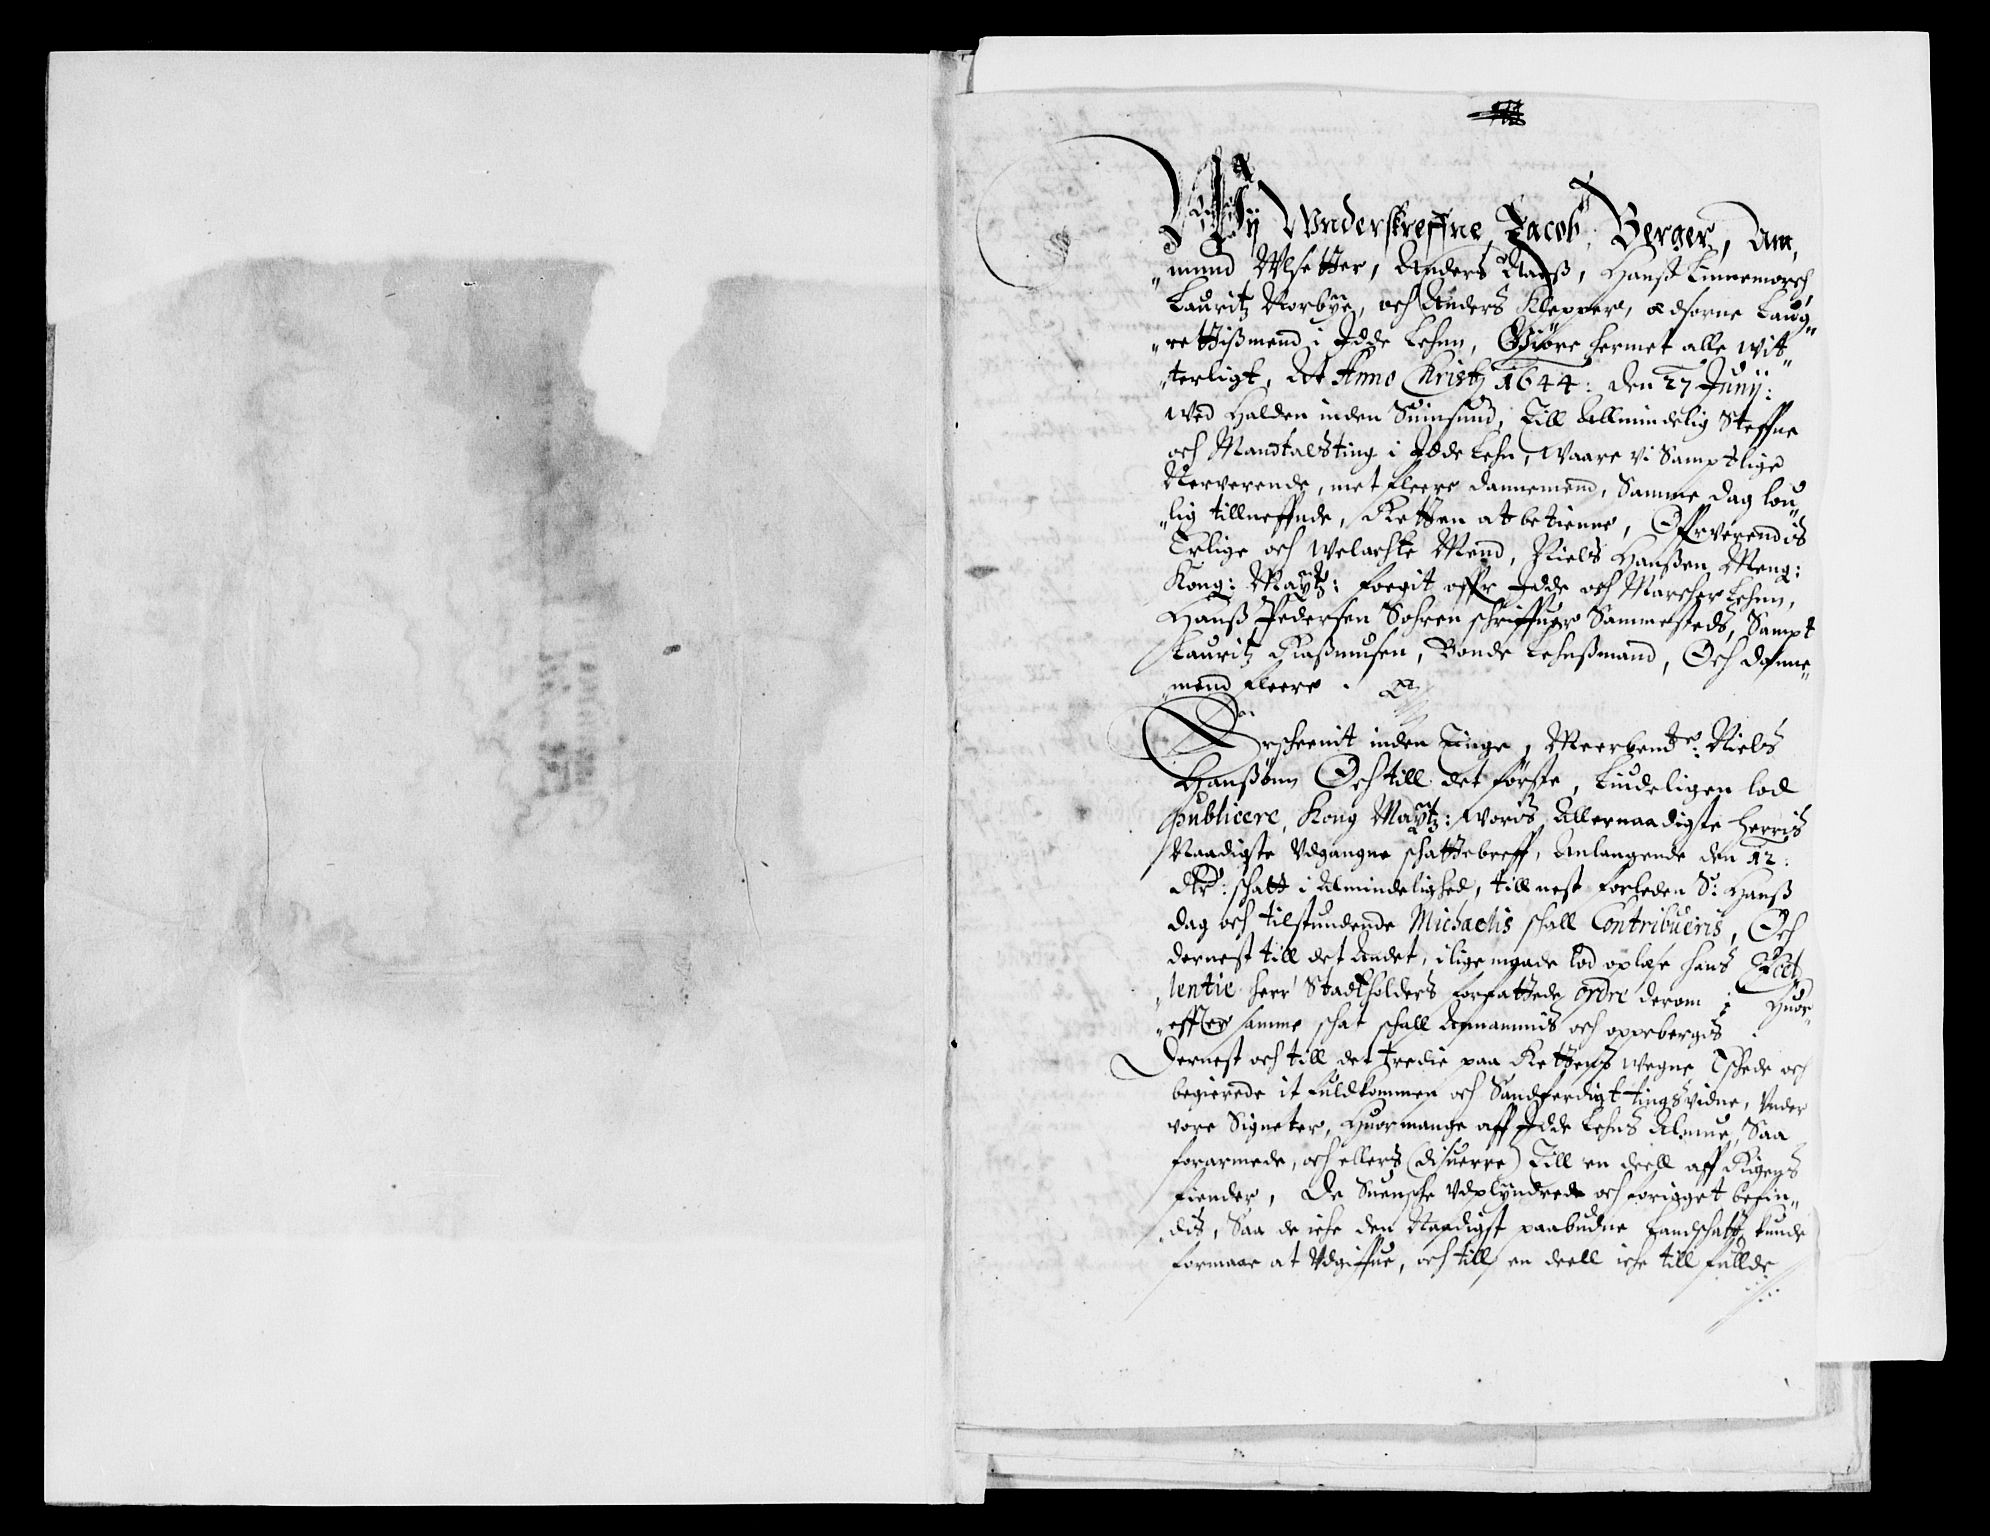 Wy Vnderskreffne Jacob Berger, Am,
„mund Wlsetter, Anders Naeß, Hanß Linnemorch
Lauritz Norbye, och Anders Klepper, Edsorne Laug„
„rettißmend i Idde Lehnn, Giöre hermet alle wit„
„terligt, At Anno Christj 1644: den 27 Junij:
wed Halden inden Suinsund, Till Allmindelig Steffne
och Mandtalsting i Idde Lehn, Waare vi Samptlige
Nerverende, met fleere dannemend, Samme dag lou„
„lig tillneffnde, Retten at betienne, Offrverendis
Erlige och welachte Mend, Niels Hanßen Meng:
Kong: Maytz: foegit offr Idde och Marcher Lehnn,
Hanß Pedersen Sohrenschriffuer Sammesteds, Sampt
Lauritz Raßmusen, Bonde Lehnßmand, Och danne„
„mend fleere.
Erscheenit inden Tinge, Meerbente Niels
Hanßönn Och till det första, Liudeligen lod
publicere, Kong Maytz: woris Allernaadigste Herris
Naadigste Vdgangne schattebreff, Anlangende den 12:
dlr: schatt i Almindelighed, till nest forleden S: Hanß
dag och tilstundende Michaelis schall Contribueris, Och
dernest till det Andet, i lige maade lod oplæse hans Excel
„lentie herr Stadtholders forfattede ordre derom i Huor„
„effter samme schat schall Anammis och oppebergis
Dernest och till det tredie paa Rettens wegne Eschede och
begierede it fuldkommen och Sandferdigt tingsvidne, Vnder
vore Signeter, Huormange aff Idde Lehns Almue, Saa
forarmede, och ellers (disuerre) Till en deell aff Rigens
fiender, De Suensche Vdplyndrede och forigget befin„
dis, Saa de iche den Naadigst paabudne Landschatt kunde
formaae at Vdgiffue, och till en deell iche till fullde